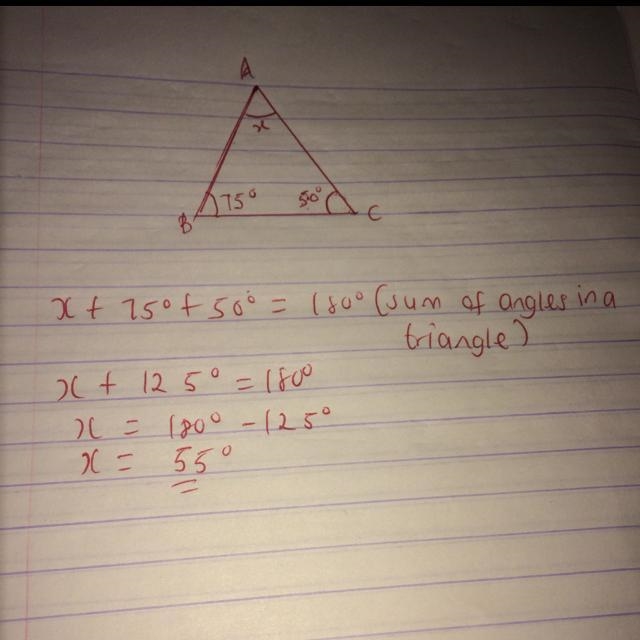 A
x
75° 50°
B C
x + 75° + 50° = 180° (sum of angles in a
triangle)
x + 125° = 180°
x = 180° - 125°
x = 55°